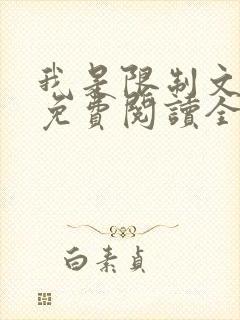 我是限制文
免費閱讀全
白素貞